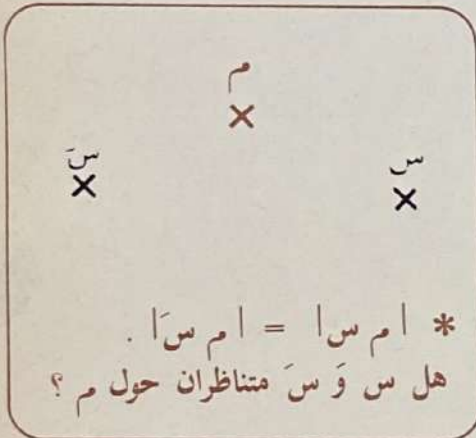 م
×
سَ
×
س
×
* | م س | = | م سَ | .
هل س وَ سَ متناظران حول م ؟